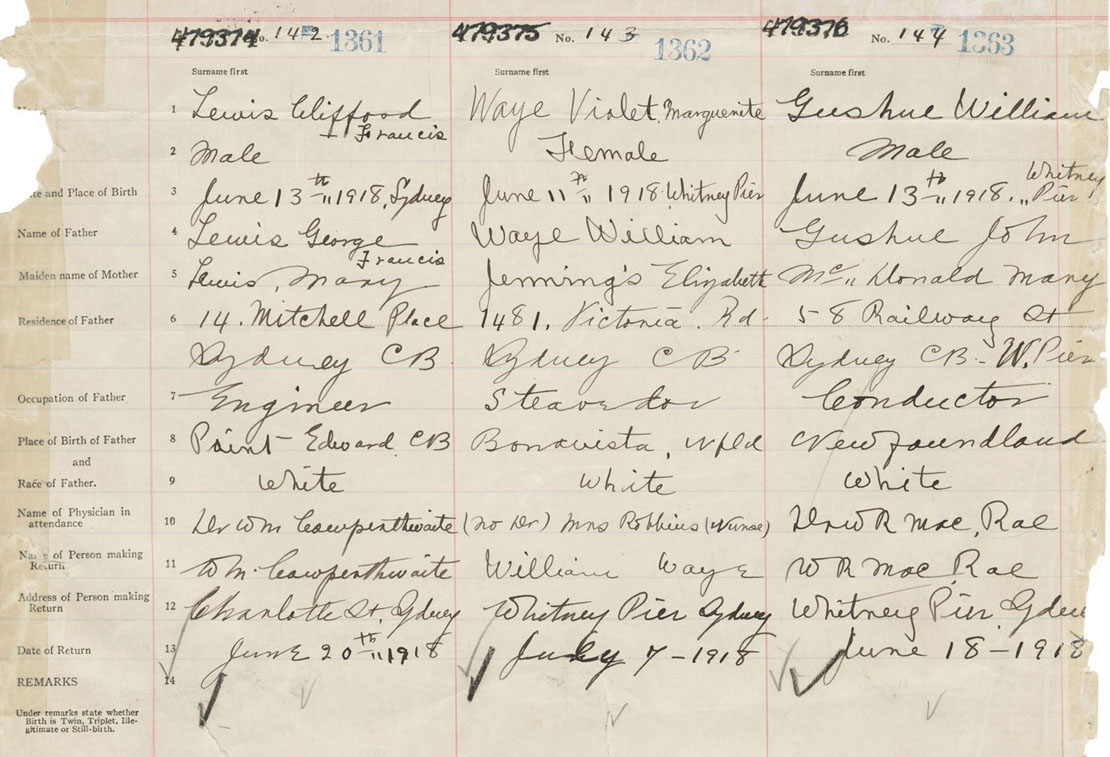 479374 No. 142 1361 479375 No. 143 1362 479376 No. 144 1363
Surname first Surname first Surname first
1 Lewis Cliffood Francis Waye Violet Marguerite Gushue William
2 Male Female Male
ate and Place of Birth 3 June 13th 1918, Sydney June 11th 1918 Whitney Pier June 13th 1918. Whitney Pier
Name of Father 4 Lewis George Francis Waye William Gushue John
Maiden name of Mother 5 Lewis, Mary Jenning's Elizabeth Mc Donald Mary
Residence of Father 6 14. Mitchell Place 1481. Victoria. Rd. 58 Railway St
Sydney CB. Sydney CB Sydney CB - W. Pier
Occupation of Father 7 Engineer Steavedor Conductor
Place of Birth of Father 8 Point Edward CB Bonavista, Nfld Newfoundland
and
Race of Father. 9 White White White
Name of Physician in attendance 10 Dr Wm Cowperthwaite (no Dr) Mrs Robbins (Nurse) Dr W R Mac, Rae
Name of Person making Return 11 Wm. Cowperthwaite William Waye W R Mac Rae
Address of Person making Return 12 Charlotte St, Sydney Whitney Pier Sydney Whitney Pier, Sydney
Date of Return 13 June 20th 1918 July 7 - 1918 June 18 - 1918
REMARKS 14
Under remarks state whether
Birth is Twin, Triplet, Ille-
gitimate or Still-birth.